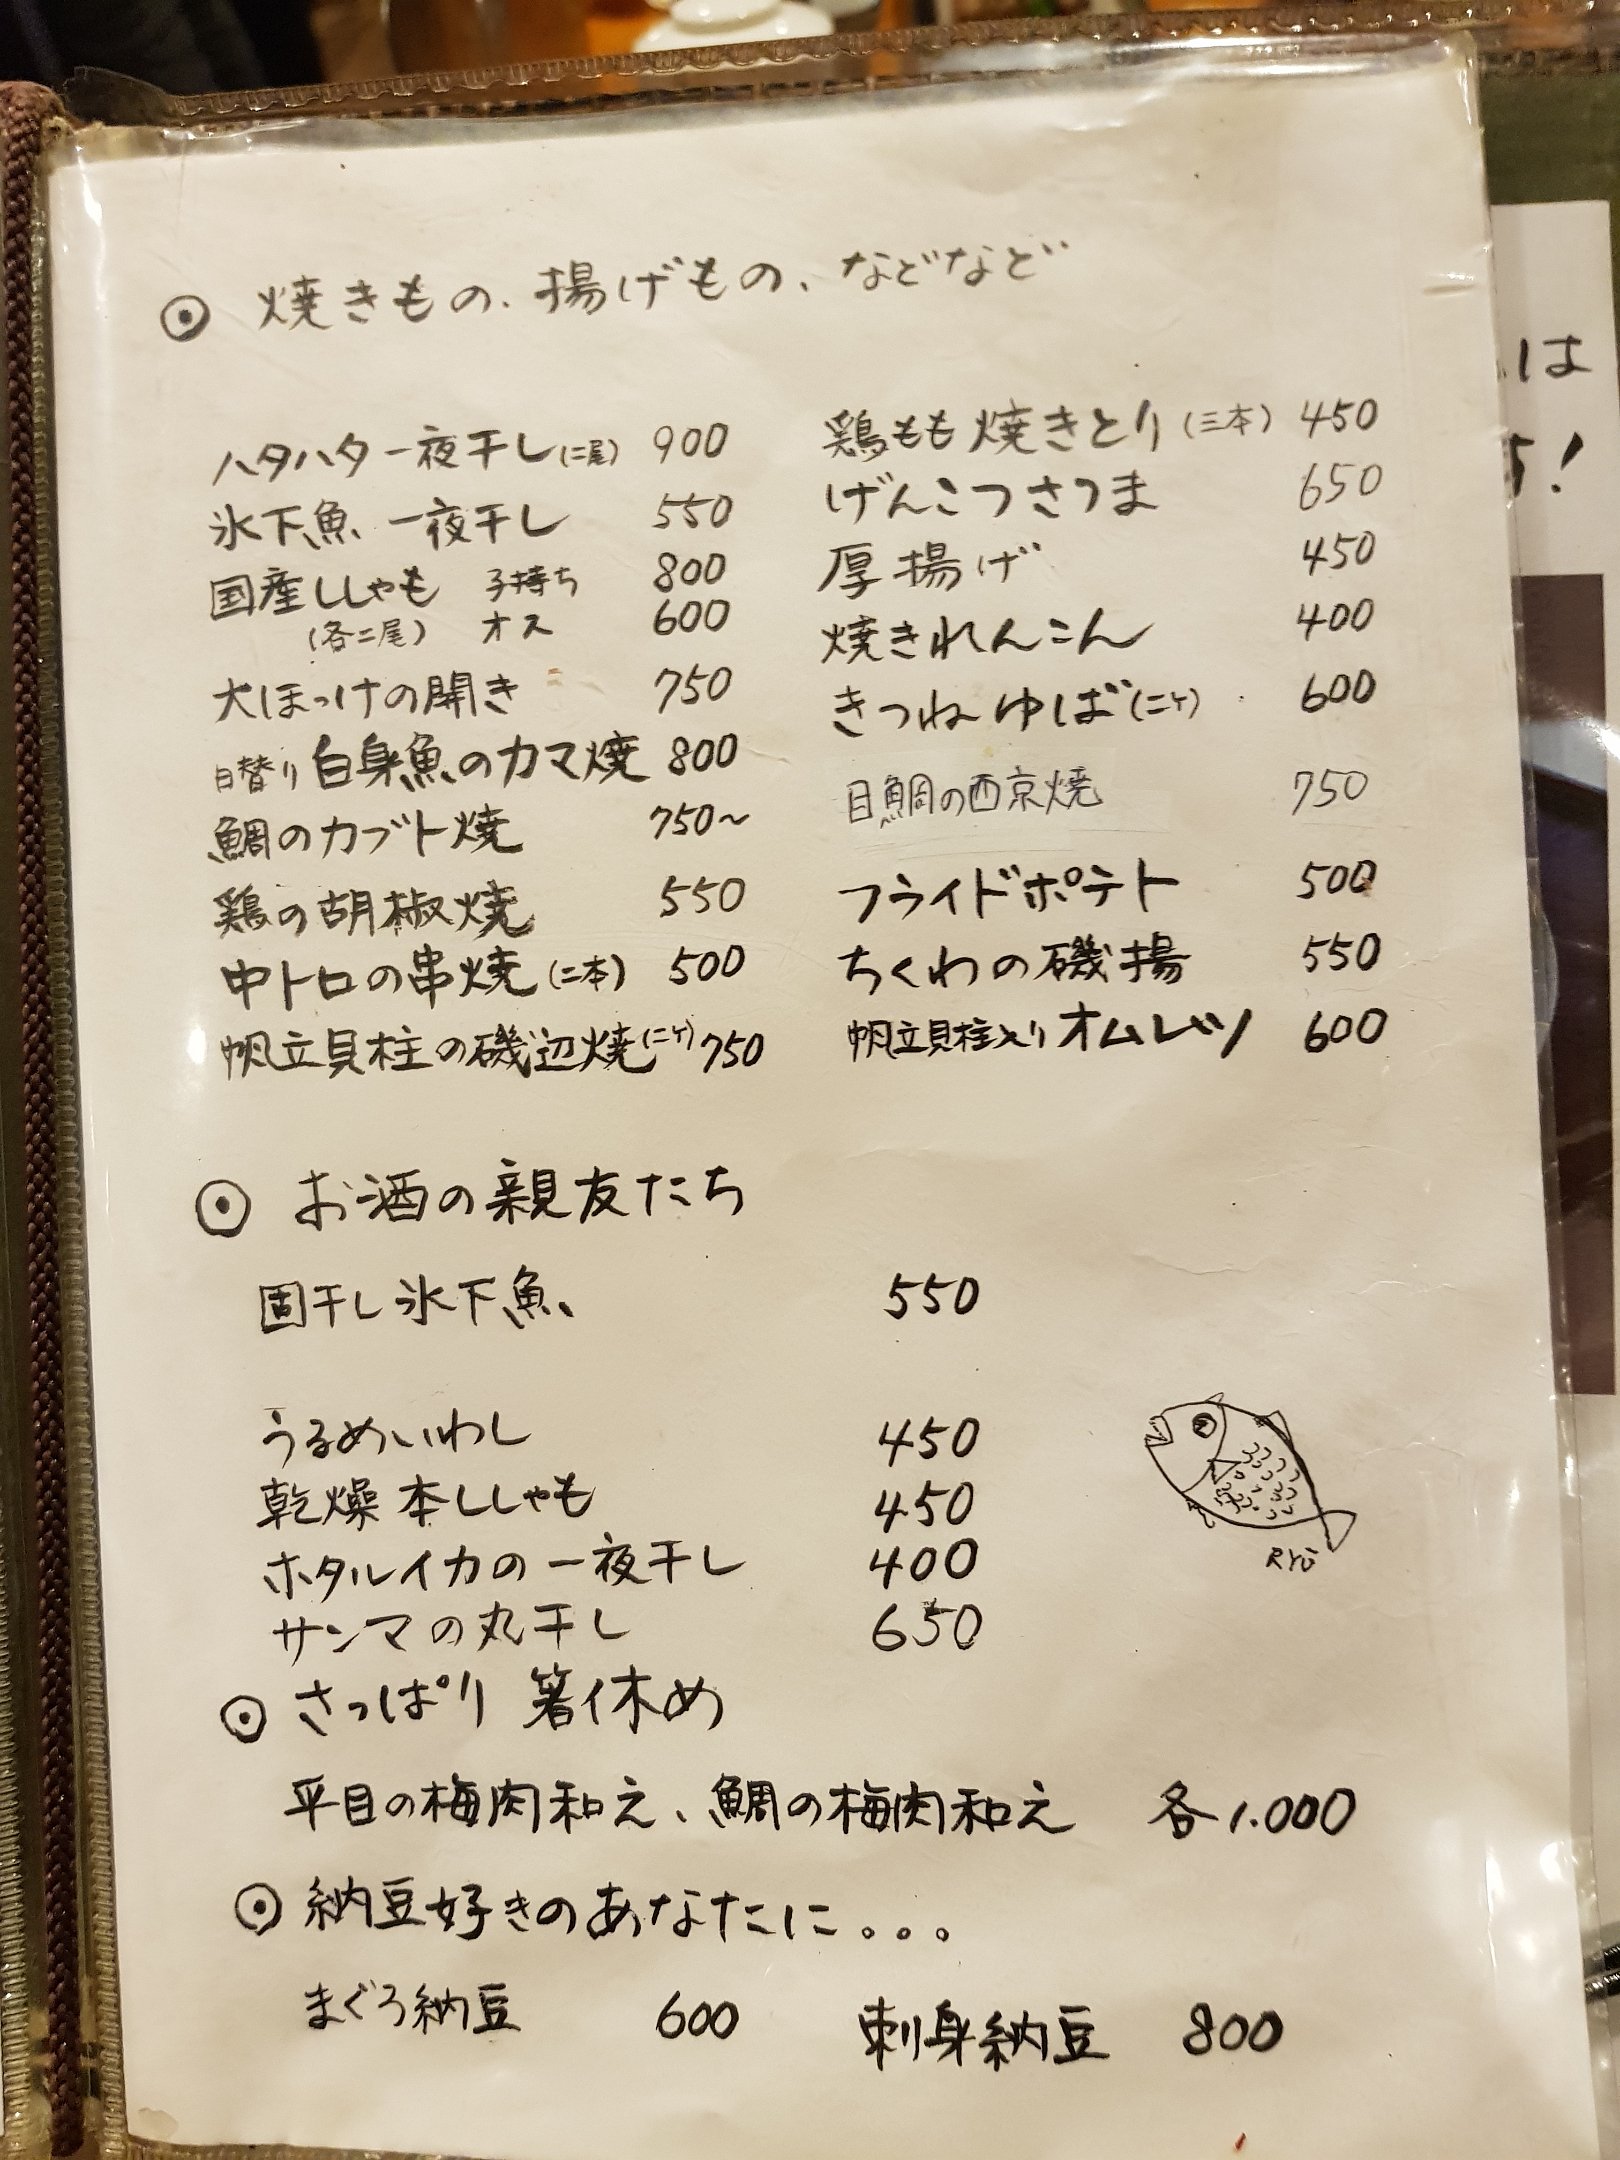 ◉ 焼きもの、揚げもの、などなど
ハタハタ一夜干し(二尾) 900
氷下魚 一夜干し 550
国産ししゃも 子持ち 800
(各二尾) オス 600
大ほっけの開き 750
日替り 白身魚のカマ焼 800
鯛のカブト焼 750〜
鶏の胡椒焼 550
中トロの串焼(二本) 500
帆立貝柱の磯辺焼(二ケ) 750
鶏もも焼きとり(三本) 450
げんこつさつま 650
厚揚げ 450
焼きれんこん 400
きつねゆば(二ケ) 600
目鯛の西京焼 750
フライドポテト 500
ちくわの磯揚 550
帆立貝柱入り オムレツ 600
◉ お酒の親友たち
固干し氷下魚 550
うるめいわし 450
乾燥 本ししゃも 450
ホタルイカの一夜干し 400
サンマの丸干し 650
RYŪ
◉ さっぱり 箸休め
平目の梅肉和え、鯛の梅肉和え 各1.000
◉ 納豆好きのあなたに。。。
まぐろ納豆 600 刺身納豆 800
は
!